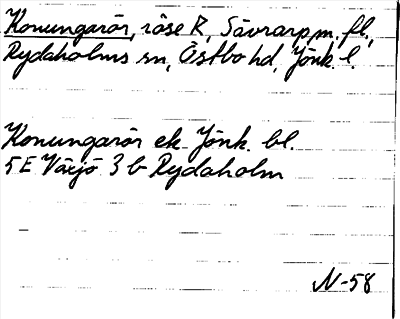 Konungarör, röse R, Sävrarp m. fl.,
Rydaholms sn, Östbo hd, Jönk. l.
Konungarör ek. Jönk. bl.
5 E Växjö 3 b Rydaholm
N-58